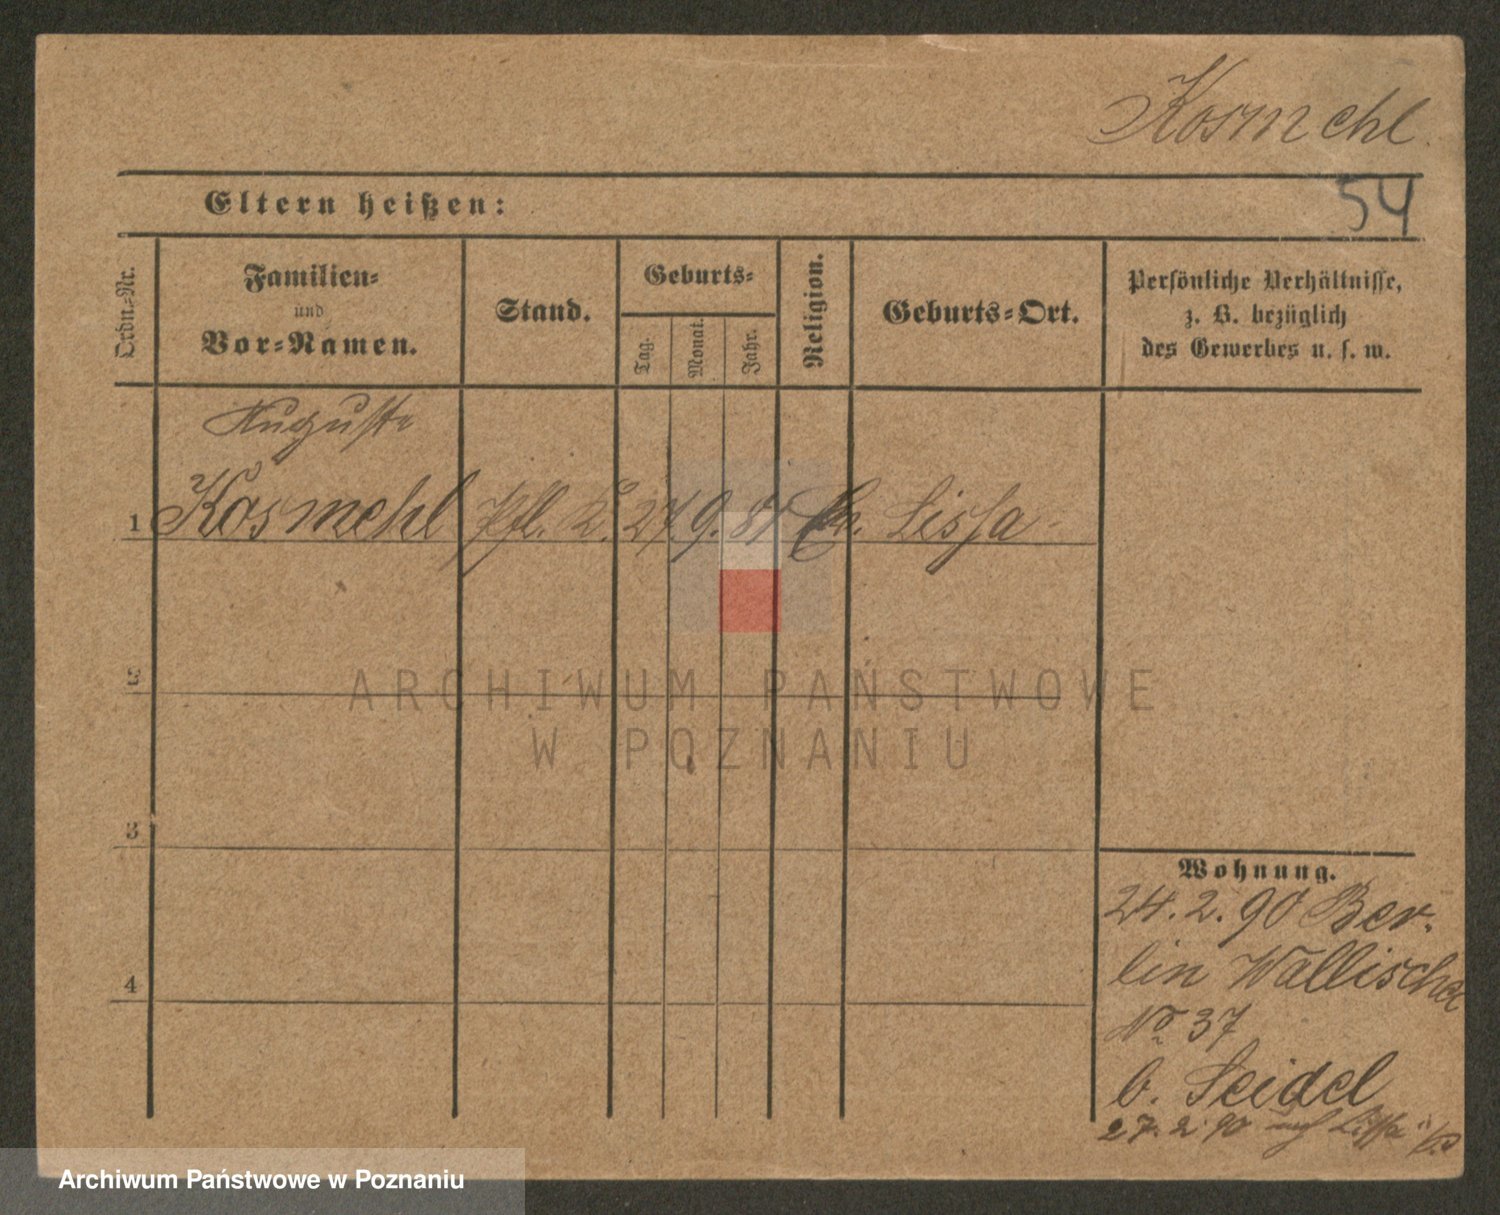 Kosmehl
54
Eltern heißen:
Ordn.-Nr.
Familien-
und
Vor-Namen.
Stand.
Geburts-
Tag.
Monat.
Jahr.
Religion.
Geburts-Ort.
Persönliche Verhältnisse,
z. B. bezüglich
des Gewerbes u. s. w.
Auguste
1 Kosmehl Pfl. K. 27. 9. Ev. Lissa
2
3
4
ARCHIWUM PAŃSTWOWE
W POZNANIU
Wohnung.
24. 2. 90 Ber-
lin Wallischei
No 37
b. Seidel
27. 2. 90 nach Lissa
Archiwum Państwowe w Poznaniu